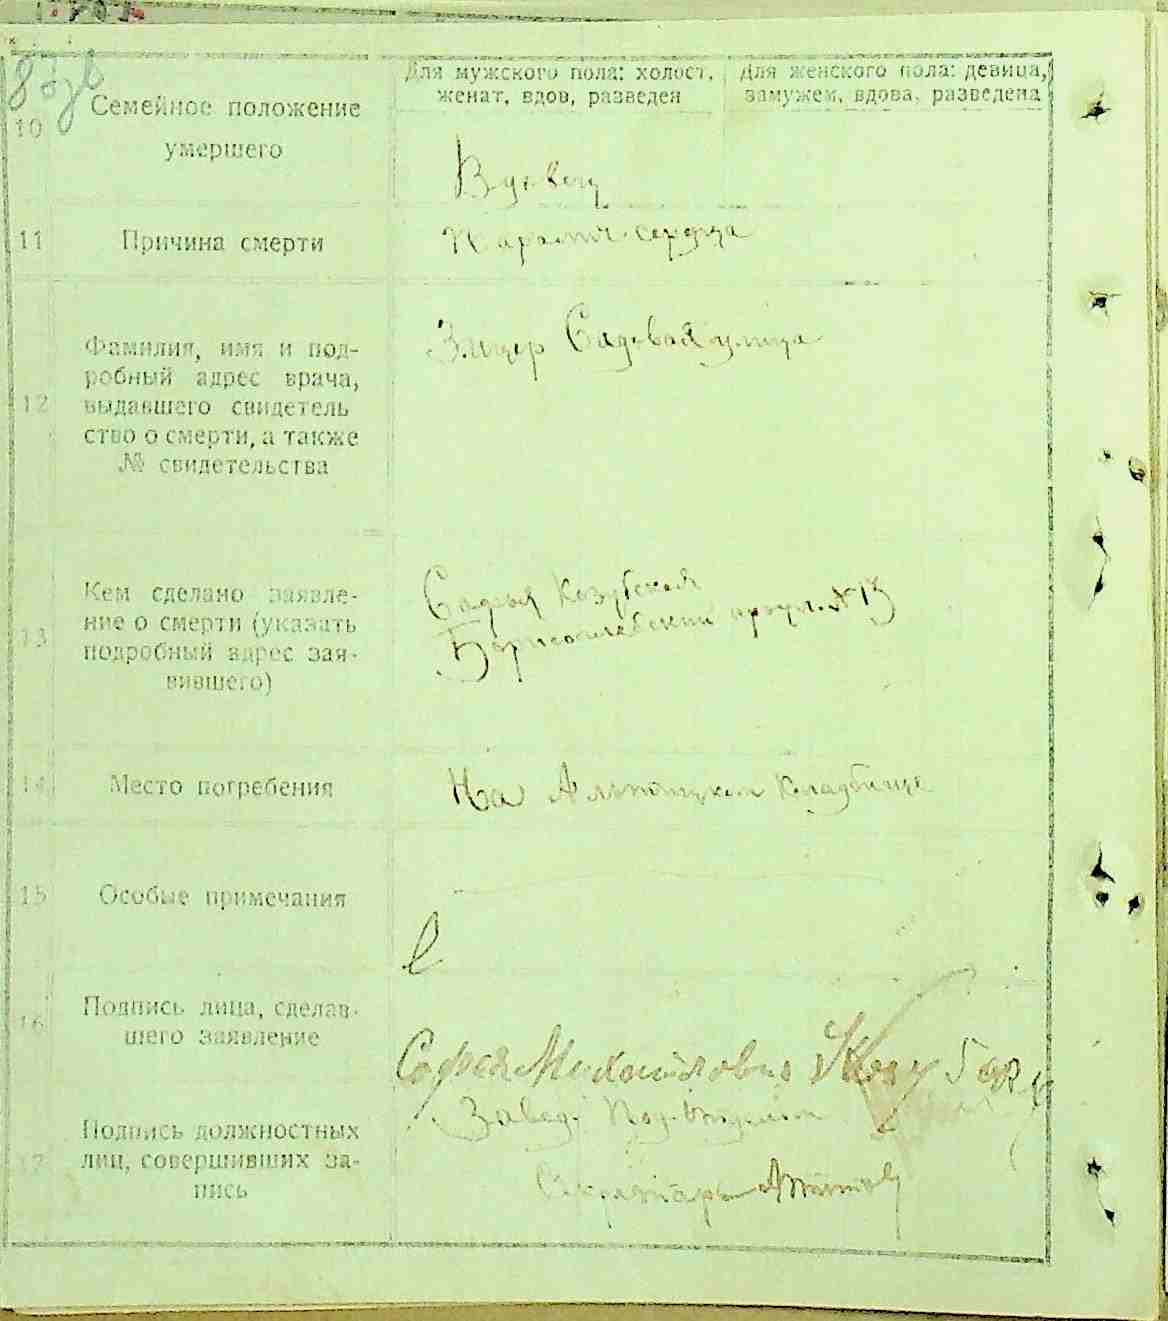 18 об
Для мужского пола: холост, женат, вдов, разведен
Для женского пола: девица, замужем, вдова, разведена
10
Семейное положение
умершего
Вдовец
11
Причина смерти
Паралич сердца
12
Фамилия, имя и под-
робный адрес врача,
выдавшего свидетель
ство о смерти, а также
№ свидетельства
Садовая улица
13
Кем сделано заявле-
ние о смерти (указать
подробный адрес зая-
вившего)
Козубская
Борисоглебский № 13
14
Место погребения
На кладбище
15
Особые примечания
16
Подпись лица, сделав-
шего заявление
Софья Михайловна
17
Подпись должностных
лиц, совершивших за-
пись
Завед. Подотделом
Секретарь